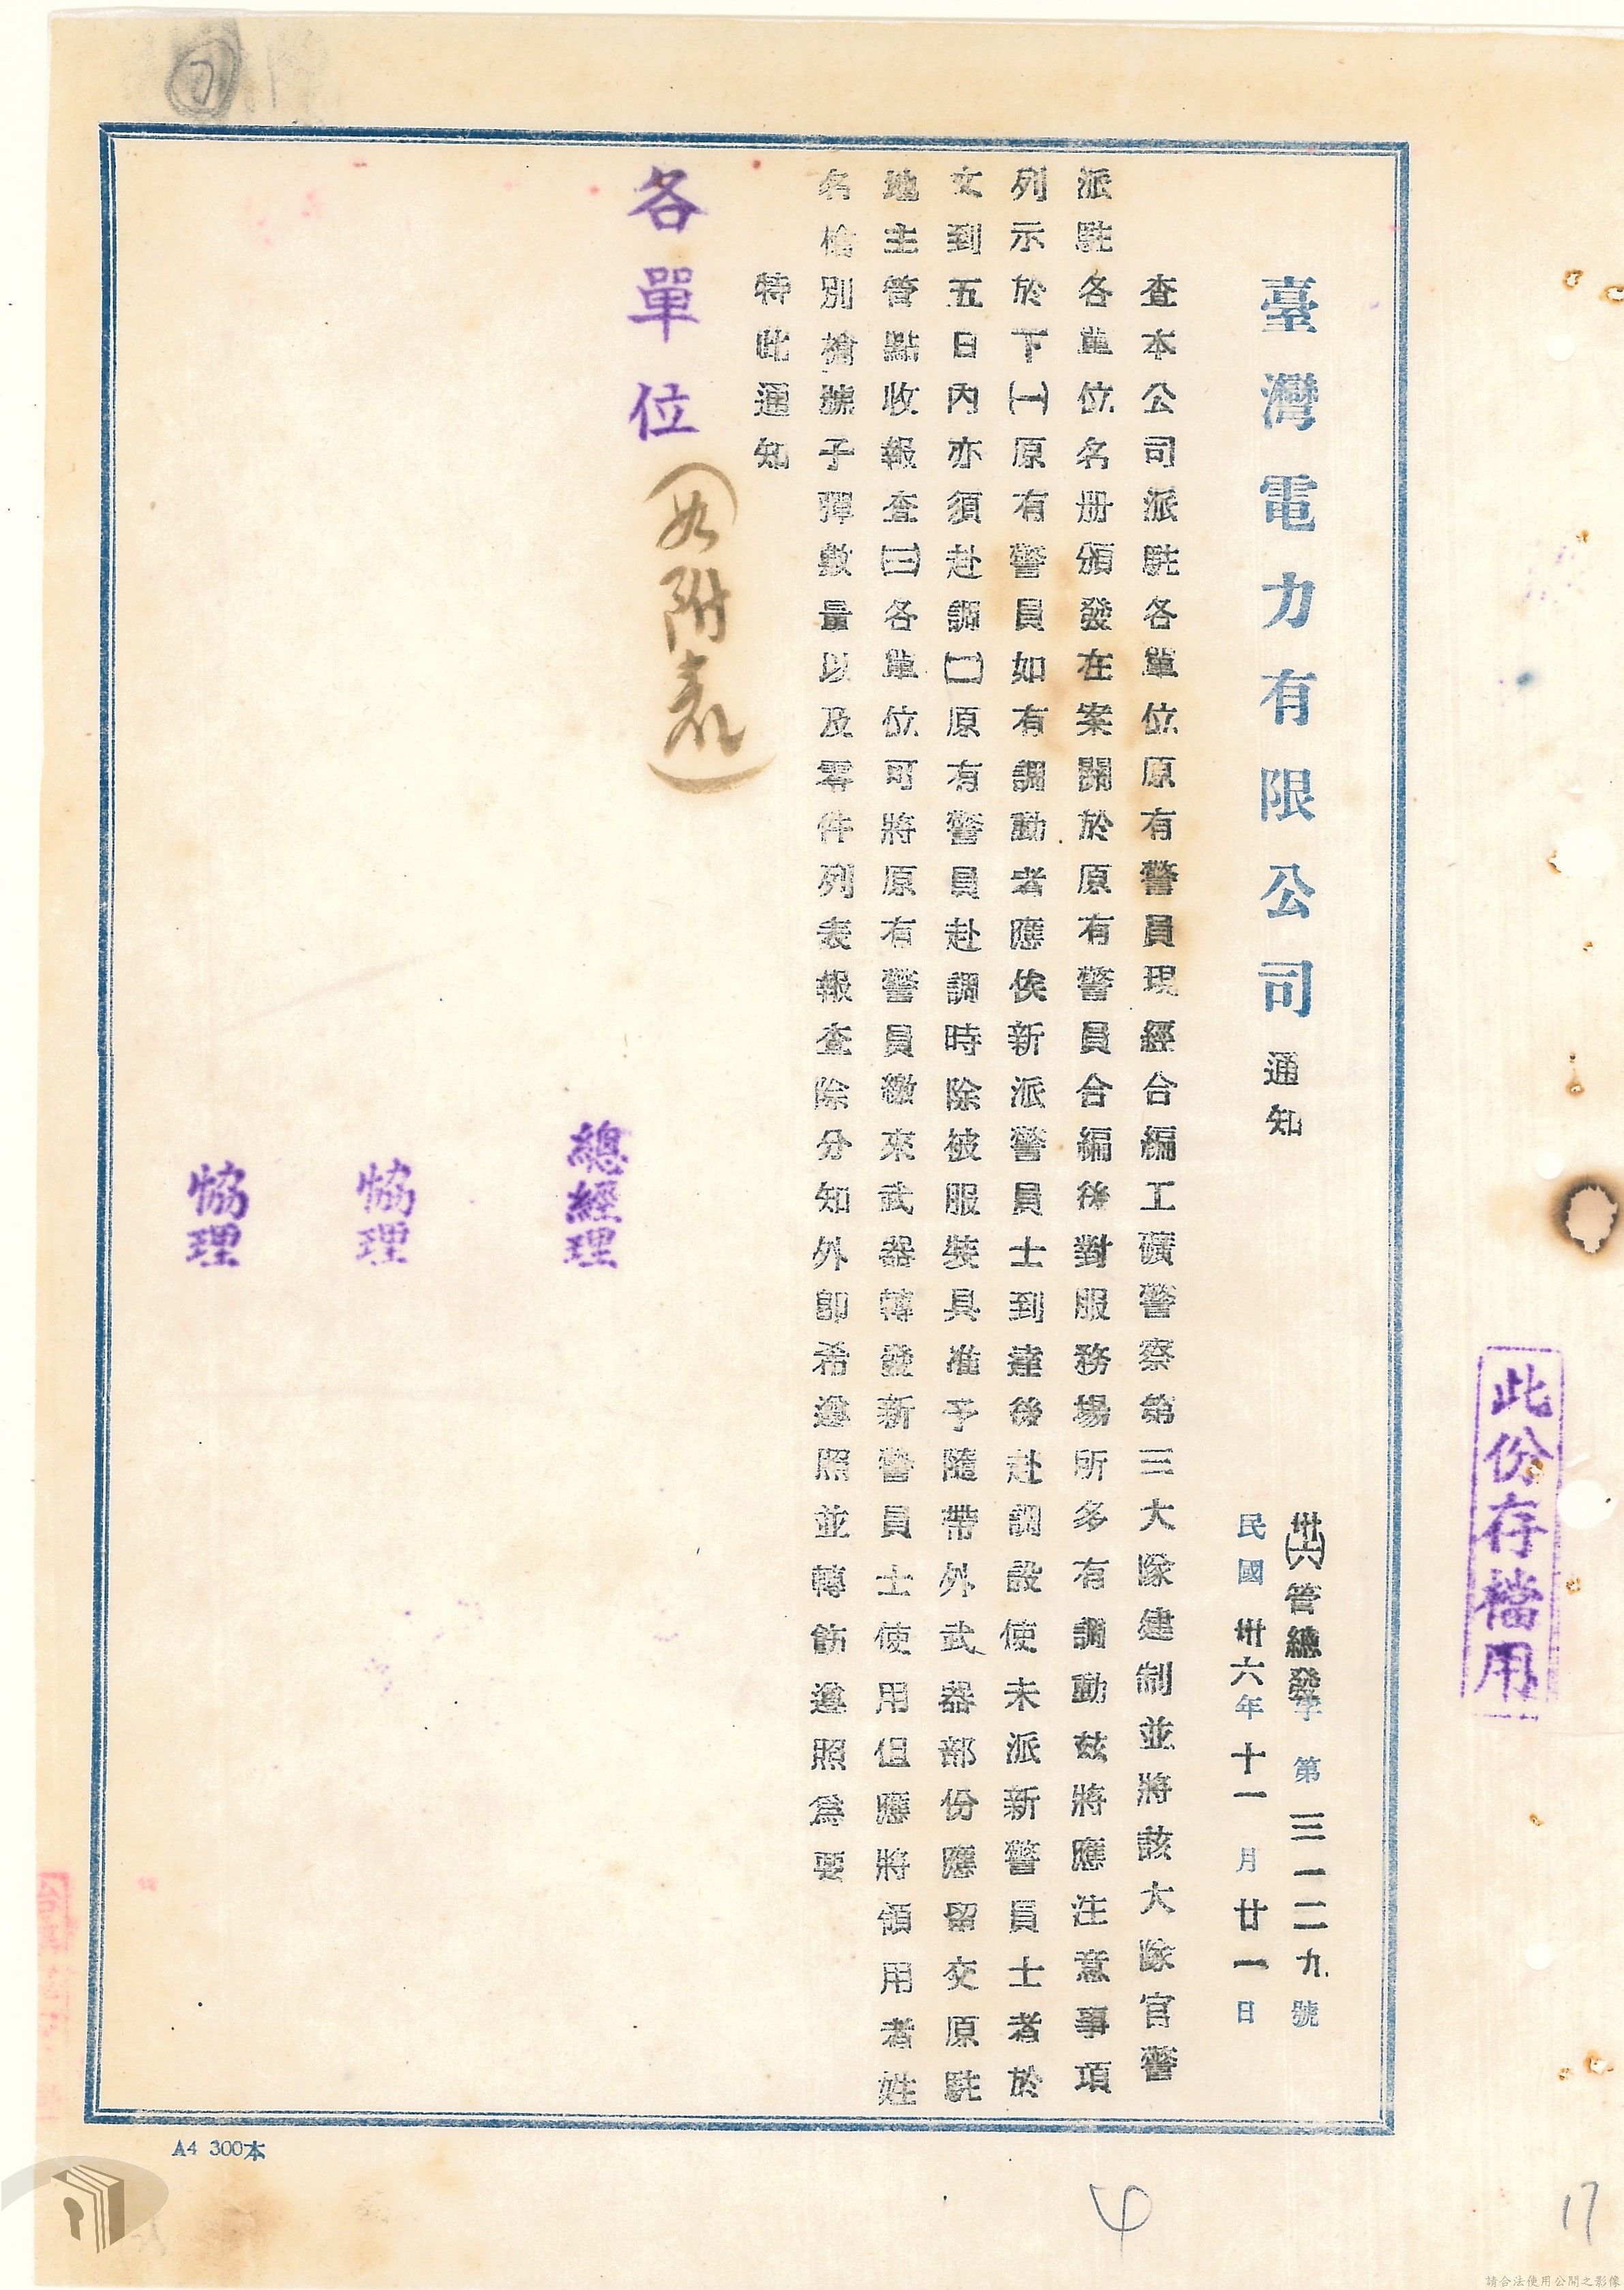 此份存檔用
臺灣電力有限公司 通知
卅(六)管總發字第三一二九號
民國卅六年十一月廿一日
查本公司派駐各單位原有警員現經合編工礦警察第三大隊建制並將該大隊官警
派駐各單位名册頒發在案關於原有警員合編後對服務場所多有調動茲將應注意事項
列示於下(一)原有警員如有調動者應俟新派警員士到達後赴調設使未派新警員士者於
文到五日內亦須赴調(二)原有警員赴調時除被服裝具准予隨帶外武器部份應留交原駐
地主管點收報查(三)各單位可將原有警員繳來武器轉發新警員士使用但應將領用者姓
名槍別槍號子彈數量以及零件列表報查除分知外卽希遵照並轉飭遵照爲要
特此通知
各單位(如附表)
總經理
協理
協理
A4 300本
17
請合法使用公開之影像